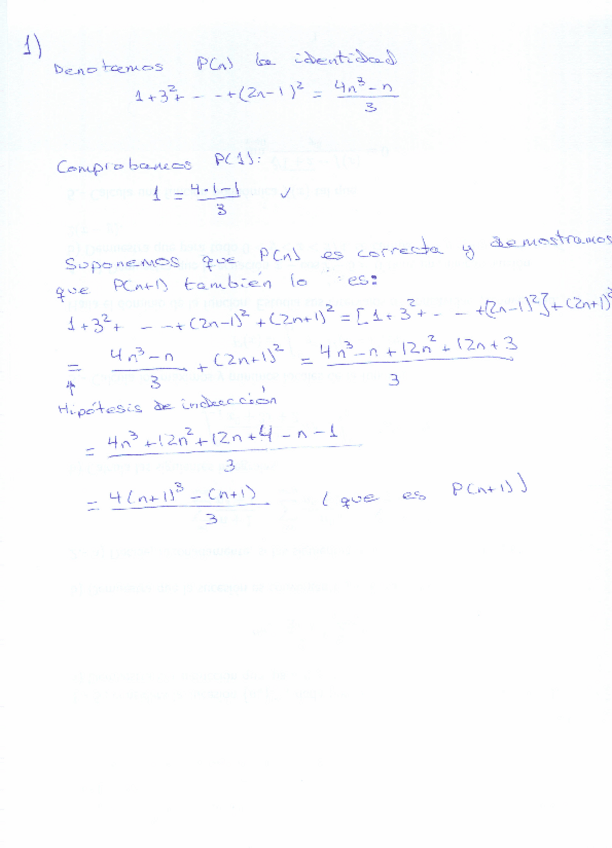 1)
Denotamos P(n) la identidad
1+3²+ - - -+(2n-1)² = (4n³-n)/3
Comprobamos P(1):
1 = (4·1-1)/3 ✓
Suponemos que P(n) es correcta y demostramos
que P(n+1) también lo es:
1+3²+ - - -+(2n-1)²+(2n+1)² = [1+3²+ - - +(2n-1)²]+(2n+1)²
= (4n³-n)/3 + (2n+1)² = (4n³-n+12n²+12n+3)/3
↑
Hipótesis de inducción
= (4n³+12n²+12n+4-n-1)/3
= (4(n+1)³-(n+1))/3 (que es P(n+1))